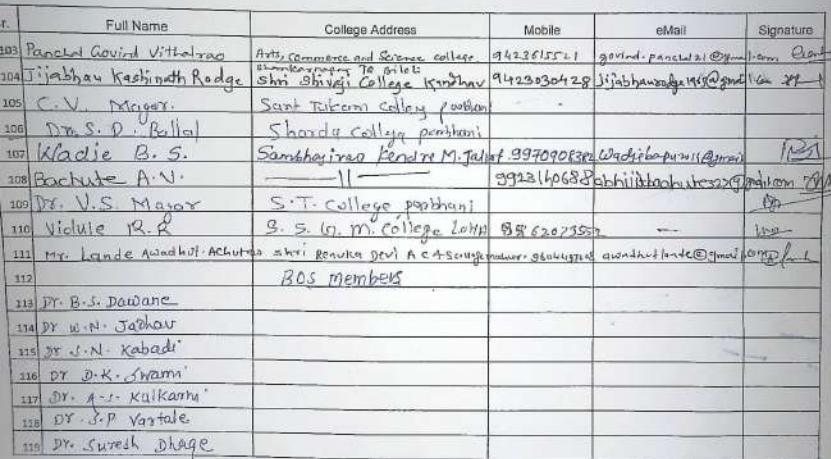 r. Full Name College Address Mobile eMail Signature
103 Panchal Govind Vithalrao Arts, Commerce and Science college, Shankarnagar Tq Biloli 9423615521
104 Jijabhau Kashinath Rodge Shri Shivaji College Kandhar 9423030428
105 C.V. Magar. Sant Tukaram College parbhani
106 Dr. S. D. Ballal Sharda College parbhani
107 Wadje B. S. Sambhajirao Kendre M. Jalkot 9970908382
108 Bachute A.V. —11— 9923140688
109 Dr. V.S. Magar S.T. College parbhani
110 Vidule R.R S. S. G. M. College Loha –
111 Mr. Lande Awadhut Achutrao Shri Renuka Devi A C & S College mahur
112 BOS members
113 Dr. B.S. Dawane
114 Dr W.N. Jadhav
115 Dr S.N. Kabadi
116 Dr D.K. Swami
117 Dr. A.S. Kulkarni
118 Dr. S.P Vartale
119 Dr. Suresh Dhage